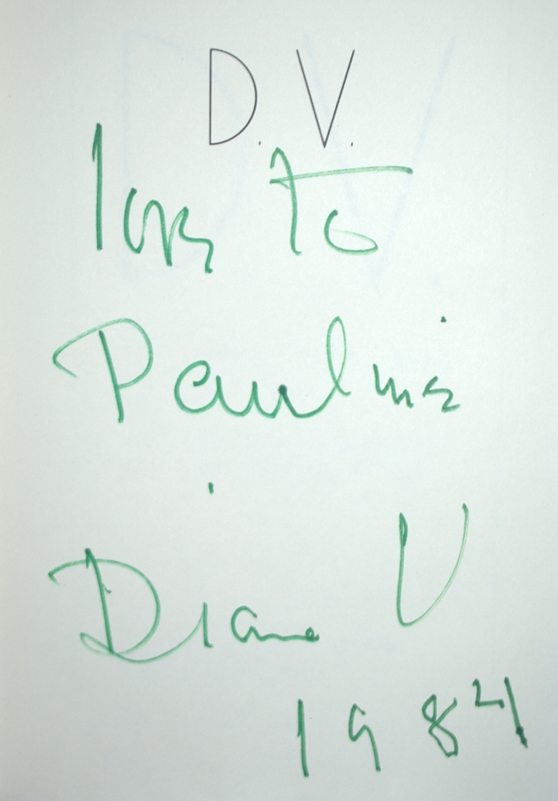 D.V.
love to
Pauline
Diana V
1984